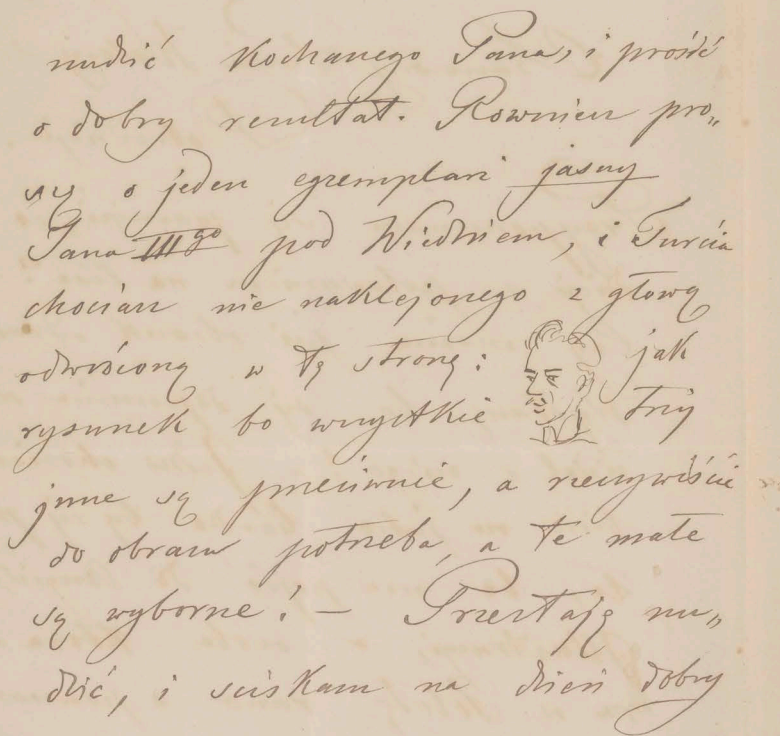 nudzić kochanego Pana, i prosić
o dobry rezultat. Rownież pro„
szę o jeden egzemplarz jasny
Jana III go pod Wiedniem, i Turcia
chociaż nie naklejonego z głową
odwrócioną w tę stronę: jak
rysunek bo wszystkie trzy
jnne są przeciwnie, a rzeczywiście
do obrazu potrzeba, a te małe
są wyborne! — Przestaję nu„
dzić, i sciskam na dzień dobry